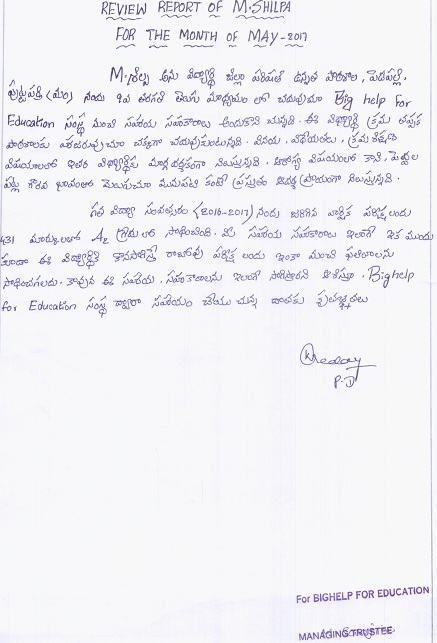 REVIEW REPORT OF M.SHILPA
FOR THE MONTH OF MAY-2017
M.శిల్ప అను విద్యార్థి జిల్లా పరిషత్ ఉన్నత పాఠశాల, పెదపల్లి,
పుట్టపర్తి (మం) నందు 9వ తరగతి తెలుగు మాధ్యమం లో చదువుచూ Big help For
Education సంస్థ నుంచి సహాయ సహకారాలు అందుకొని యున్నది. ఈ విద్యార్థి క్రమం తప్పక
పాఠశాలకు హాజరువుచూ చక్కగా చదువుకుంటున్నది. వినయ, విధేయతలు, క్రమశిక్షణ
విషయాలలో ఇతర విద్యార్థులకు మార్గదర్శకంగా నిలుస్తున్నది. ఆరోగ్య విషయంలో కానీ, పెద్దల
పట్ల గౌరవ భావంతో మెలుగుచూ మునుపటి కంటే ప్రస్తుతం ఆదర్శప్రాయంగా నిలుస్తున్నది.
గత విద్యా సంవత్సరం (2016-2017) నందు జరిగిన వార్షిక పరీక్షలందు
431 మార్కులతో A2 గ్రేడులో సాధించింది. మీ సహాయ సహకారాలు ఇలాగే ఇక ముందు
కూడా ఈ విద్యార్థికి కొనసాగిస్తే రాబోవు పరీక్షలందు ఇంకా మంచి ఫలితాలను
సాధించగలదు. కావున ఈ సహాయ, సహకారాలను ఇలాగే సాగిస్తారని ఆశిస్తూ. Bighelp
for Education సంస్థ ద్వారా సహాయం చేయుచున్న దాతకు కృతజ్ఞతలు
P.D
For BIGHELP FOR EDUCATION
MANAGING TRUSTEE